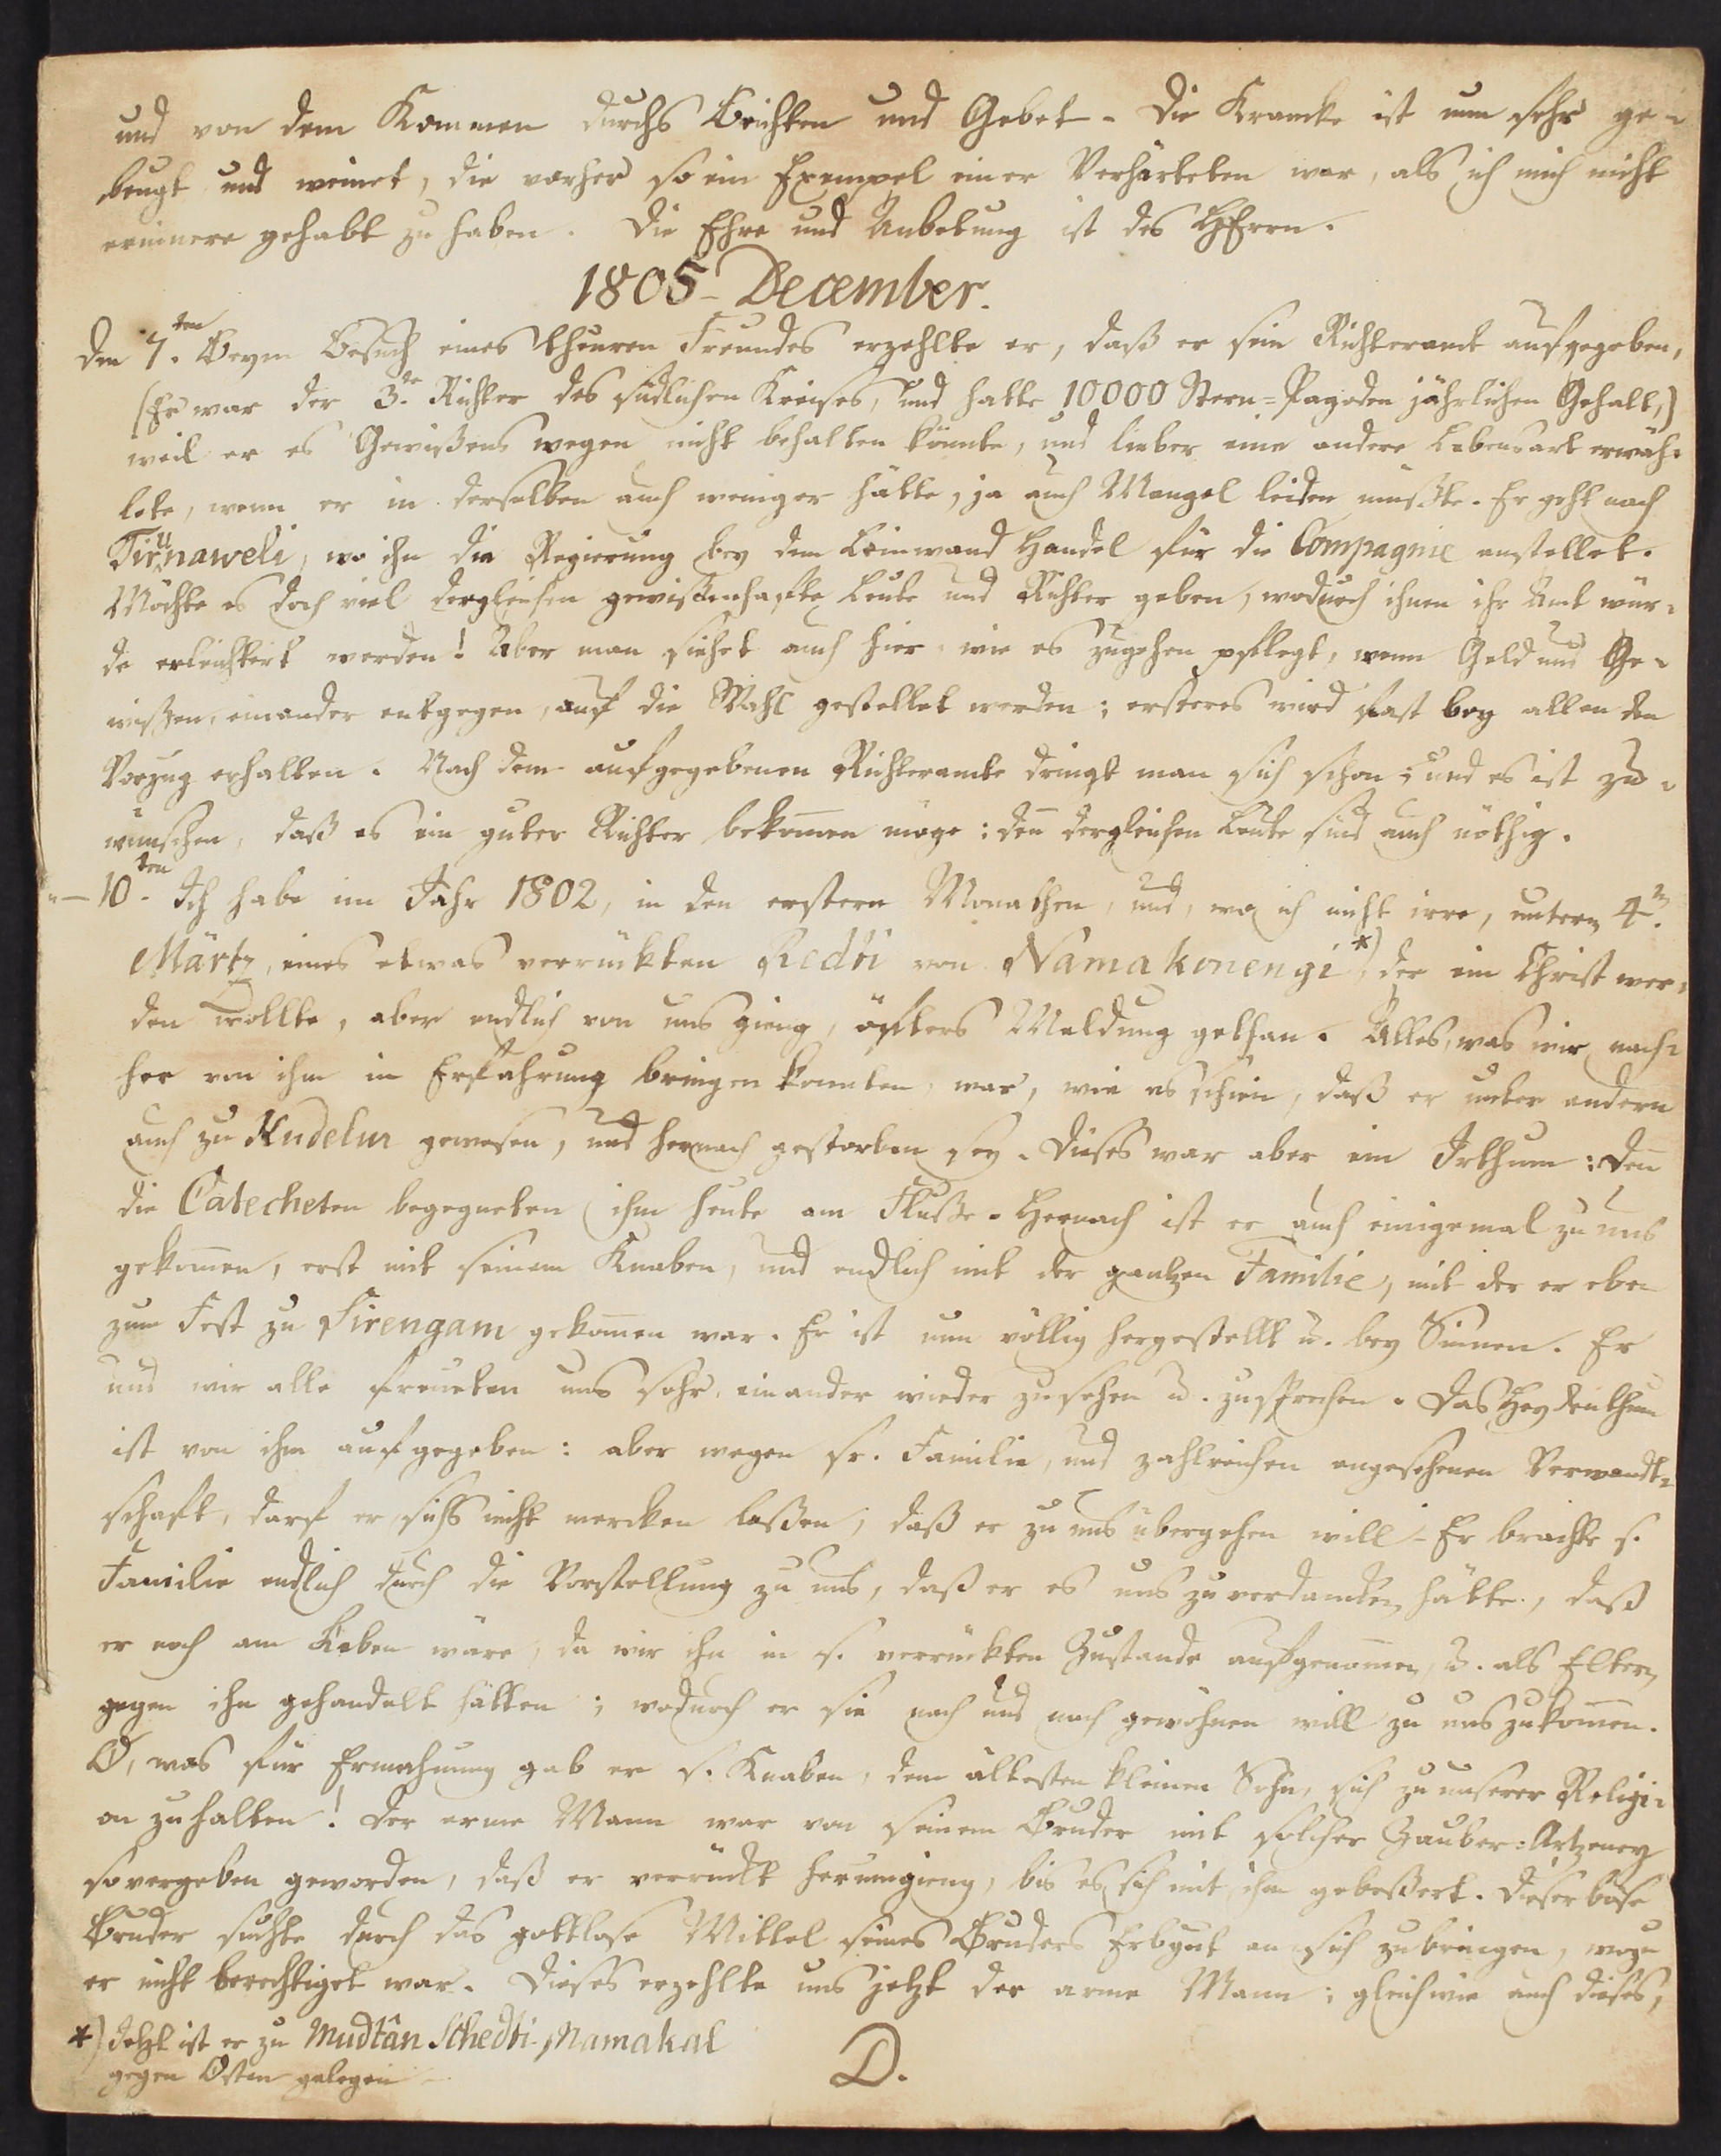 und von dem Kommen durchs Beichten und Gebet. Die Krancke ist nun sehr ge-
beugt und weinet, die vorher so ein Exempel einer Verhärteten war, als ich mich nicht
erinnere gehabt zu haben. Die Ehre und Anbetung ist des HErrn.
1805 - December.
Den 7.ten Beym Besuch eines theuren Freundes erzehlte er, daß er sein Richteramt aufgegeben,
(Er war der 3.te Richter des südlichen Kreises, und hatte 10000 Stern=Pagoden jährlichen Gehalt,)
weil er es Gewißens wegen nicht behalten könnte, und lieber eine andere Lebensart erwäh-
lete, wenn er in derselben auch weniger hätte, ja auch Mangel leiden müßte. Er geht nach
Tirunaweli, wo ihn die Regierung bey dem Leinwand Handel für die Compagnie anstellet.
Möchte es doch viel dergleichen gewissenhafte Leute und Richter geben, wodurch ihnen ihr Amt wür-
de erleichtert werden! Aber man siehet auch hier, wie es zugehen pflegt, wenn Geld und Ge-
wißen, einander entgegen, auf die Wahl gestellet werden; ersteres wird fast bey allen den
Vorzug erhalten. Nach dem aufgegebenen Richteramte dringt man sich schon; und es ist zu
wünschen, daß es ein guter Richter bekom̅en möge: den̅ dergleichen Leute sind auch nöthig.
- 10.ten Ich habe im Jahr 1802, in den erstern Monathen, und, wo ich nicht irre, unterm 4.n
Märtz, eines etwas verrückten Redti von Namakonengi *) der ein Christ wer-
den wollte, aber endlich von uns gieng, öfters Meldung gethan. Alles, was wir nach-
her von ihm in Erfahrung bringen konnten, war, wie es schien, daß er unter andern
auch zu Kudelur gewesen, und hernach gestorben sey. Dieses war aber ein Irthum: den̅
die Catecheten begegneten ihm heute am Fluße. Hernach ist er auch einigemal zu uns
gekom̅en, erst mit seinem Knaben, und endlich mit der gantzen Familie, mit der er eben
zum Fest zu Sirengam gekom̅en war. Er ist nun völlig hergestellt u. bey Sinnen. Er
und wir alle freueten uns sehr, einander wieder zu sehen u. zu sprechen. Das Heydenthum
ist von ihm aufgegeben: aber wegen sr. Familie, und zahlreichen angesehenen Verwandt-
schaft, darf er sichs nicht mercken laßen, daß er zu uns übergehen will. Er brachte s.
Familie endlich durch die Vorstellung zu uns, daß er es uns zu verdancken hätte, daß
er noch am Leben wäre, da wir ihn in s. verrückten Zustande aufgenom̅en, u. als Eltern
gegen ihn gehandelt hätten; wodurch er sie nach und nach gewöhnen will zu uns zu kom̅en.
O, was für Ermahnung gab er s. Knaben, dem ältesten kleinen Sohn, sich zu unserer Religi-
on zu halten! Der arme Mann war von seinem Bruder mit solcher Zauber=Artzeney
so vergeben geworden, daß er verrückt herumgieng, bis es sich mit ihm gebeßert. Dieser böse
Bruder suchte durch das gottlose Mittel seines Bruders Erbgut an sich zu bringen, wozu
er nicht berechtiget war. Dieses erzehlte uns jetzt der arme Mann; gleichwie auch dieses,
*) Jetzt ist er zu Mudtân Schedti-Namakal
gegen Osten gelegen
D.